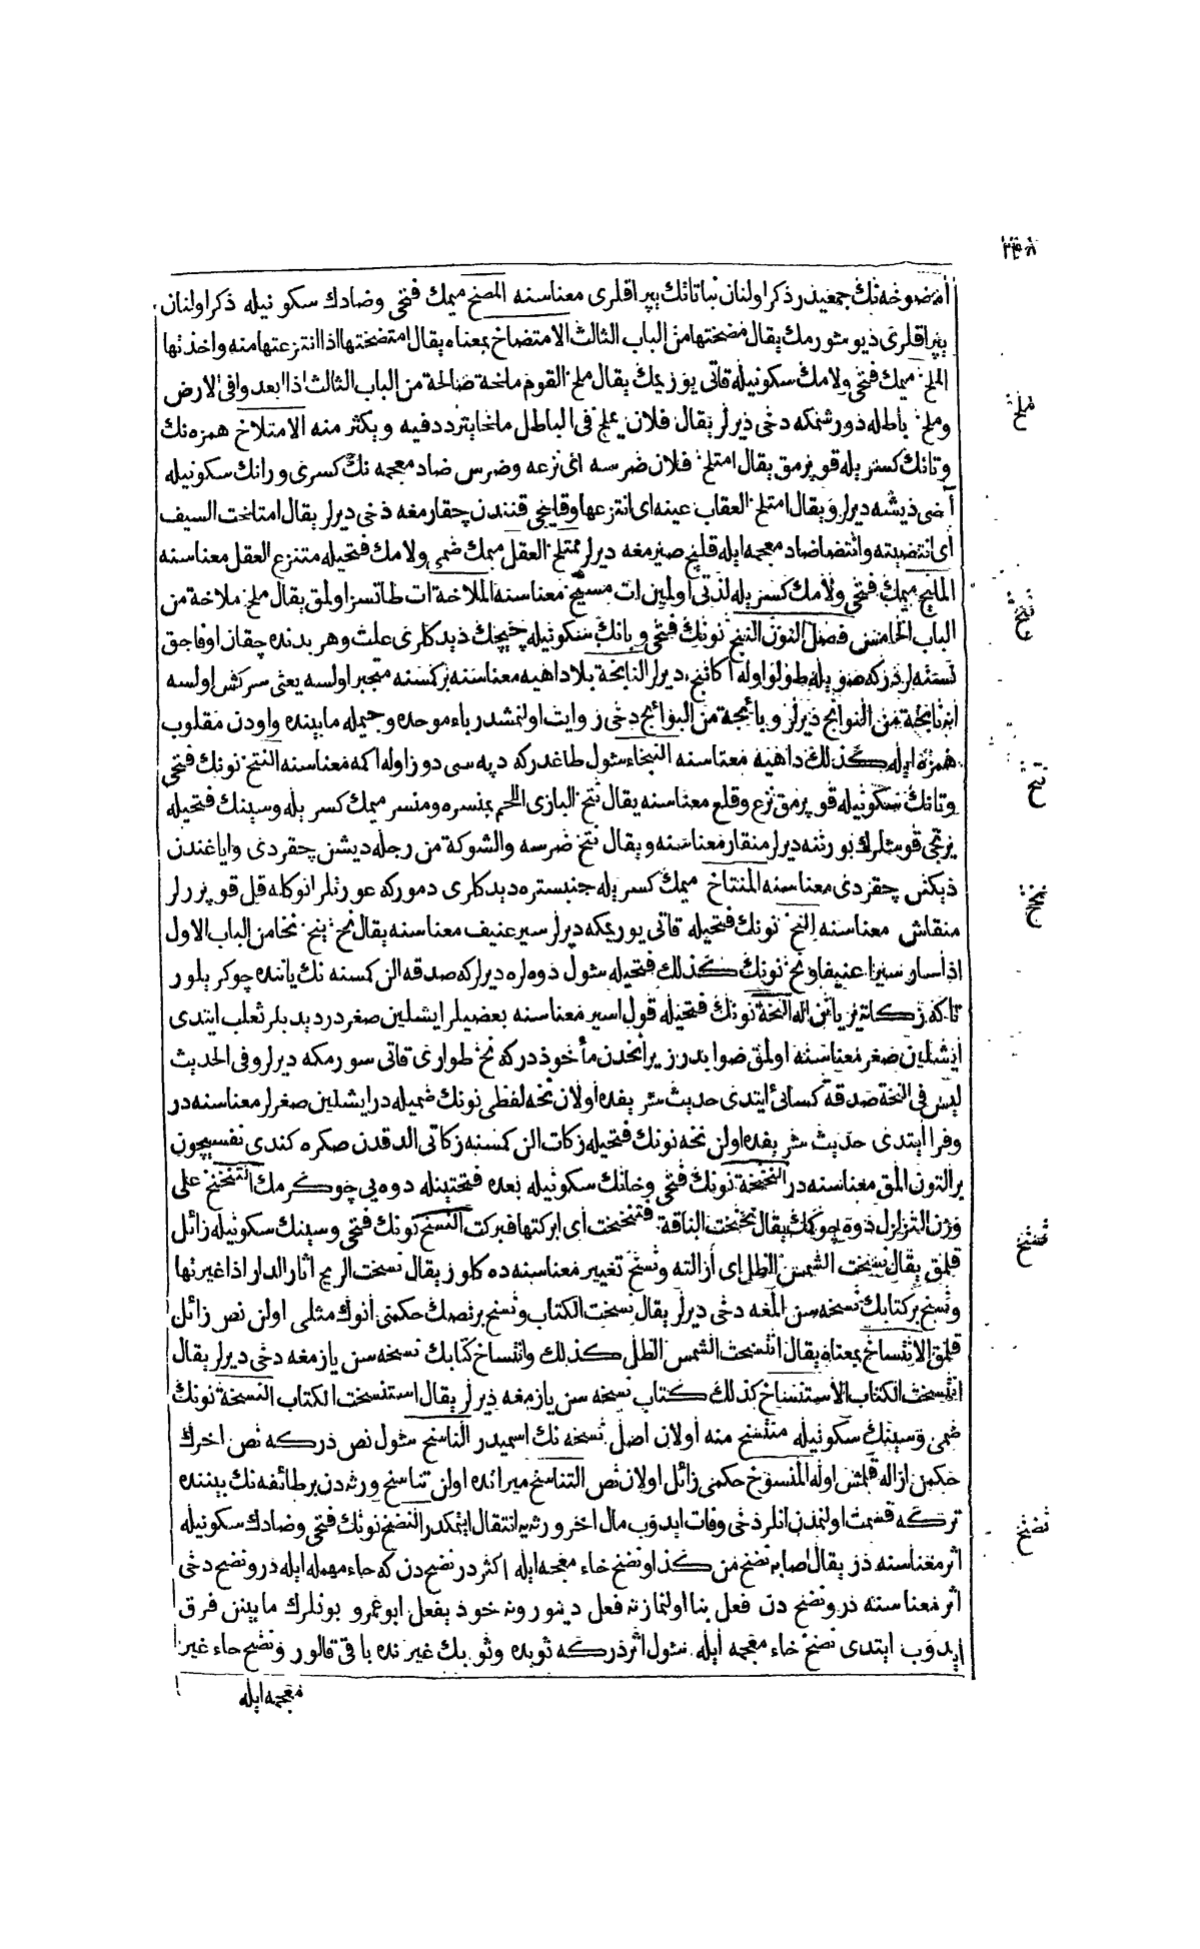 امضوخه‌نك جمعیدر ذكر اولنان نباتاتك یپراقلری معناسنه المصخ میمك فتحی وضادك سكونیله ذكر اولنان
یپراقلری دیوشورمك یقال مضختها من الباب الثالث الامتضاخ بمعناه یقال امتضختها اذا انتزعتها منه واخذتها
الملخ میمك فتحی ولامك سكونیله قاتی یوریمك یقال ملخ القوم ملخة صالحة من الباب الثالث اذا ابعدوا فی الارض
وملخ باطله دورشمكه دخی دیرلر یقال فلان یملخ فی الباطل ملخا یتردد فیه ویكثر منه الامتلاخ همزه‌نك
وتانك كسریله قوپرمق یقال امتلخ فلان ضرسه ای نزعه وضرس ضاد معجمه نك كسری ورانك سكونیله
آضی دیشه دیرلر ویقال امتلخ العقاب عینه ای انتزعها وقایغی قنندن چقارمغه دخی دیرلر یقال امتلخت السیف
ای انتضیته وانتضا ضاد معجمه ایله قلیج صیرمغه دیرلر ممتلخ العقل میمك ضمی ولامك فتحیله متنزع العقل معناسنه
الملیخ میمك فتحی ولامك كسریله لذتی اولمین ات مسیخ معناسنه الملاخة ات طاتسز اولمق یقال ملخ ملاخة من
الباب الخامس فصل النون النبخ نونك فتحی وبانك سكونیله چیچك دیدكلری علت وهر بدنده چقان اوفاجق
نسنه‌لردركه صو یله طولو اوله اكا نبخ دیرلر النابخة بلا داهیه معناسنه بر كسنه متجبر اولسه یعنی سركش اولسه
ابه نابخة من النوابخ دیرلر وبائجة من البوائج دخی روایت اولنمشدر باء موحده وجیمله مابینده واودن مقلوب
همزه ایله كذلك داهیه معناسنه النبخاء شول طاغدركه دپه سی دوز اوله اكمه معناسنه النتخ نونك فتحی
وتانك سكونیله قوپرمق نزع وقلع معناسنه یقال نتخ البازی اللحم بمنسره ومنسر میمك كسریله وسینك فتحیله
یرتجی قوشلرك بورننه دیرلر منقار معناسنه ویقال نتخ ضرسه والشوكة من رجله دیشن چقردی وایاغندن
دیكن چقردی معناسنه المنتاخ میمك كسریله جنبستره دیدكلری دموركه عورتلر انوكله قل قوپررلر
منقاش معناسنه النخ نونك فتحیله قاتی یوریمكه دیرلر سیر عنیف معناسنه یقال نخ ینخ نخا من الباب الاول
اذا سار سیرا عنیفا ونخ نونك كذلك فتحیله شول دوه‌لره دیرلركه صدقه الن كسنه نك یاننده چوكریلور
تاكه زكاتین یاتن اله النخة نونك فتحیله قول اسیر معناسنه بعضیلر ایشلین صغردر دیدیلر ثعلب ایتدی
ایشلین صغر معناسنه اولمق صوابدر زیرا نخدن مأخوذدركه نخ طواری قاتی سورمكه دیرلر وفی الحدیث
لیس فی النخة صدقة كسائی ایتدی حدیث شریفده اولان نخه لفظی نونك ضمیله در ایشلین صغرلر معناسنه در
وفرا ایتدی حدیث شریفده اولن نخه نونك فتحیله زكات الن كسنه زكاتی الدقدن صكره كندی نفسیچون
بر التون المق معناسنه در النخنخة نونك فتحی وخانك سكونیله بعده فتحتینله دوه یی چوكرمك التنخنخ علی
وزن التزلزل دوه چوكمك یقال نخنخت الناقة فتنخنخت ای ابركتها فبركت النسخ نونك فتحی وسینك سكونیله زائل
قلمق یقال نسخت الشمس الظل ای أزالته ونسخ تغییر معناسنه ده كلور یقال نسخت الریح اثار الدار اذا غیرتها
ونسخ بر كتابك نسخه سن المغه دخی دیرلر یقال نسخت الكتاب ونسخ بر نصك حكمنی انوك مثلی اولن نص زائل
قلمق الانتساخ بمعناه یقال انتسخت الشمس الظل كذلك وانتساخ كتابك نسخه سن یازمغه دخی دیرلر یقال
انتسخت الكتاب الاستنساخ كذلك كتاب نسخه سن یازمغه دیرلر یقال استنسخت الكتاب النسخة نونك
ضمی وسینك سكونیله منتسخ منه اولان اصل نسخه نك اسمیدر الناسخ شول نص دركه نص اخرك
حكمن ازاله قلمش اوله المنسوخ حكمی زائل اولان نص التناسخ میراثده اولن تناسخ ورثه دن بر طائفه نك بیننده
تركه قسمت اولنمدن انلر دخی وفات ایدوب مال اخر ورثه یه انتقال ایتمكدر النضخ نونك فتحی وضادك سكونیله
اثر معناسنه در یقال اصابه نضخ من كذا ونضخ خاء معجمه ایله اكثردر نضح دن كه حاء مهمله ایله در ونضح دخی
اثر معناسنه در ونضخ دن فعل بنا اولنماز نه فعل دینور ونه خود یفعل ابوعمرو بونلرك مابینن فرق
ایدوب ایتدی نضخ خاء معجمه ایله شول اثر دركه ثوبده وثوبك غیرنده باقی قالور ونضح حاء غیر
معجمه ایله
ملخ
نبخ
نتخ
نخخ
نسخ
نضخ